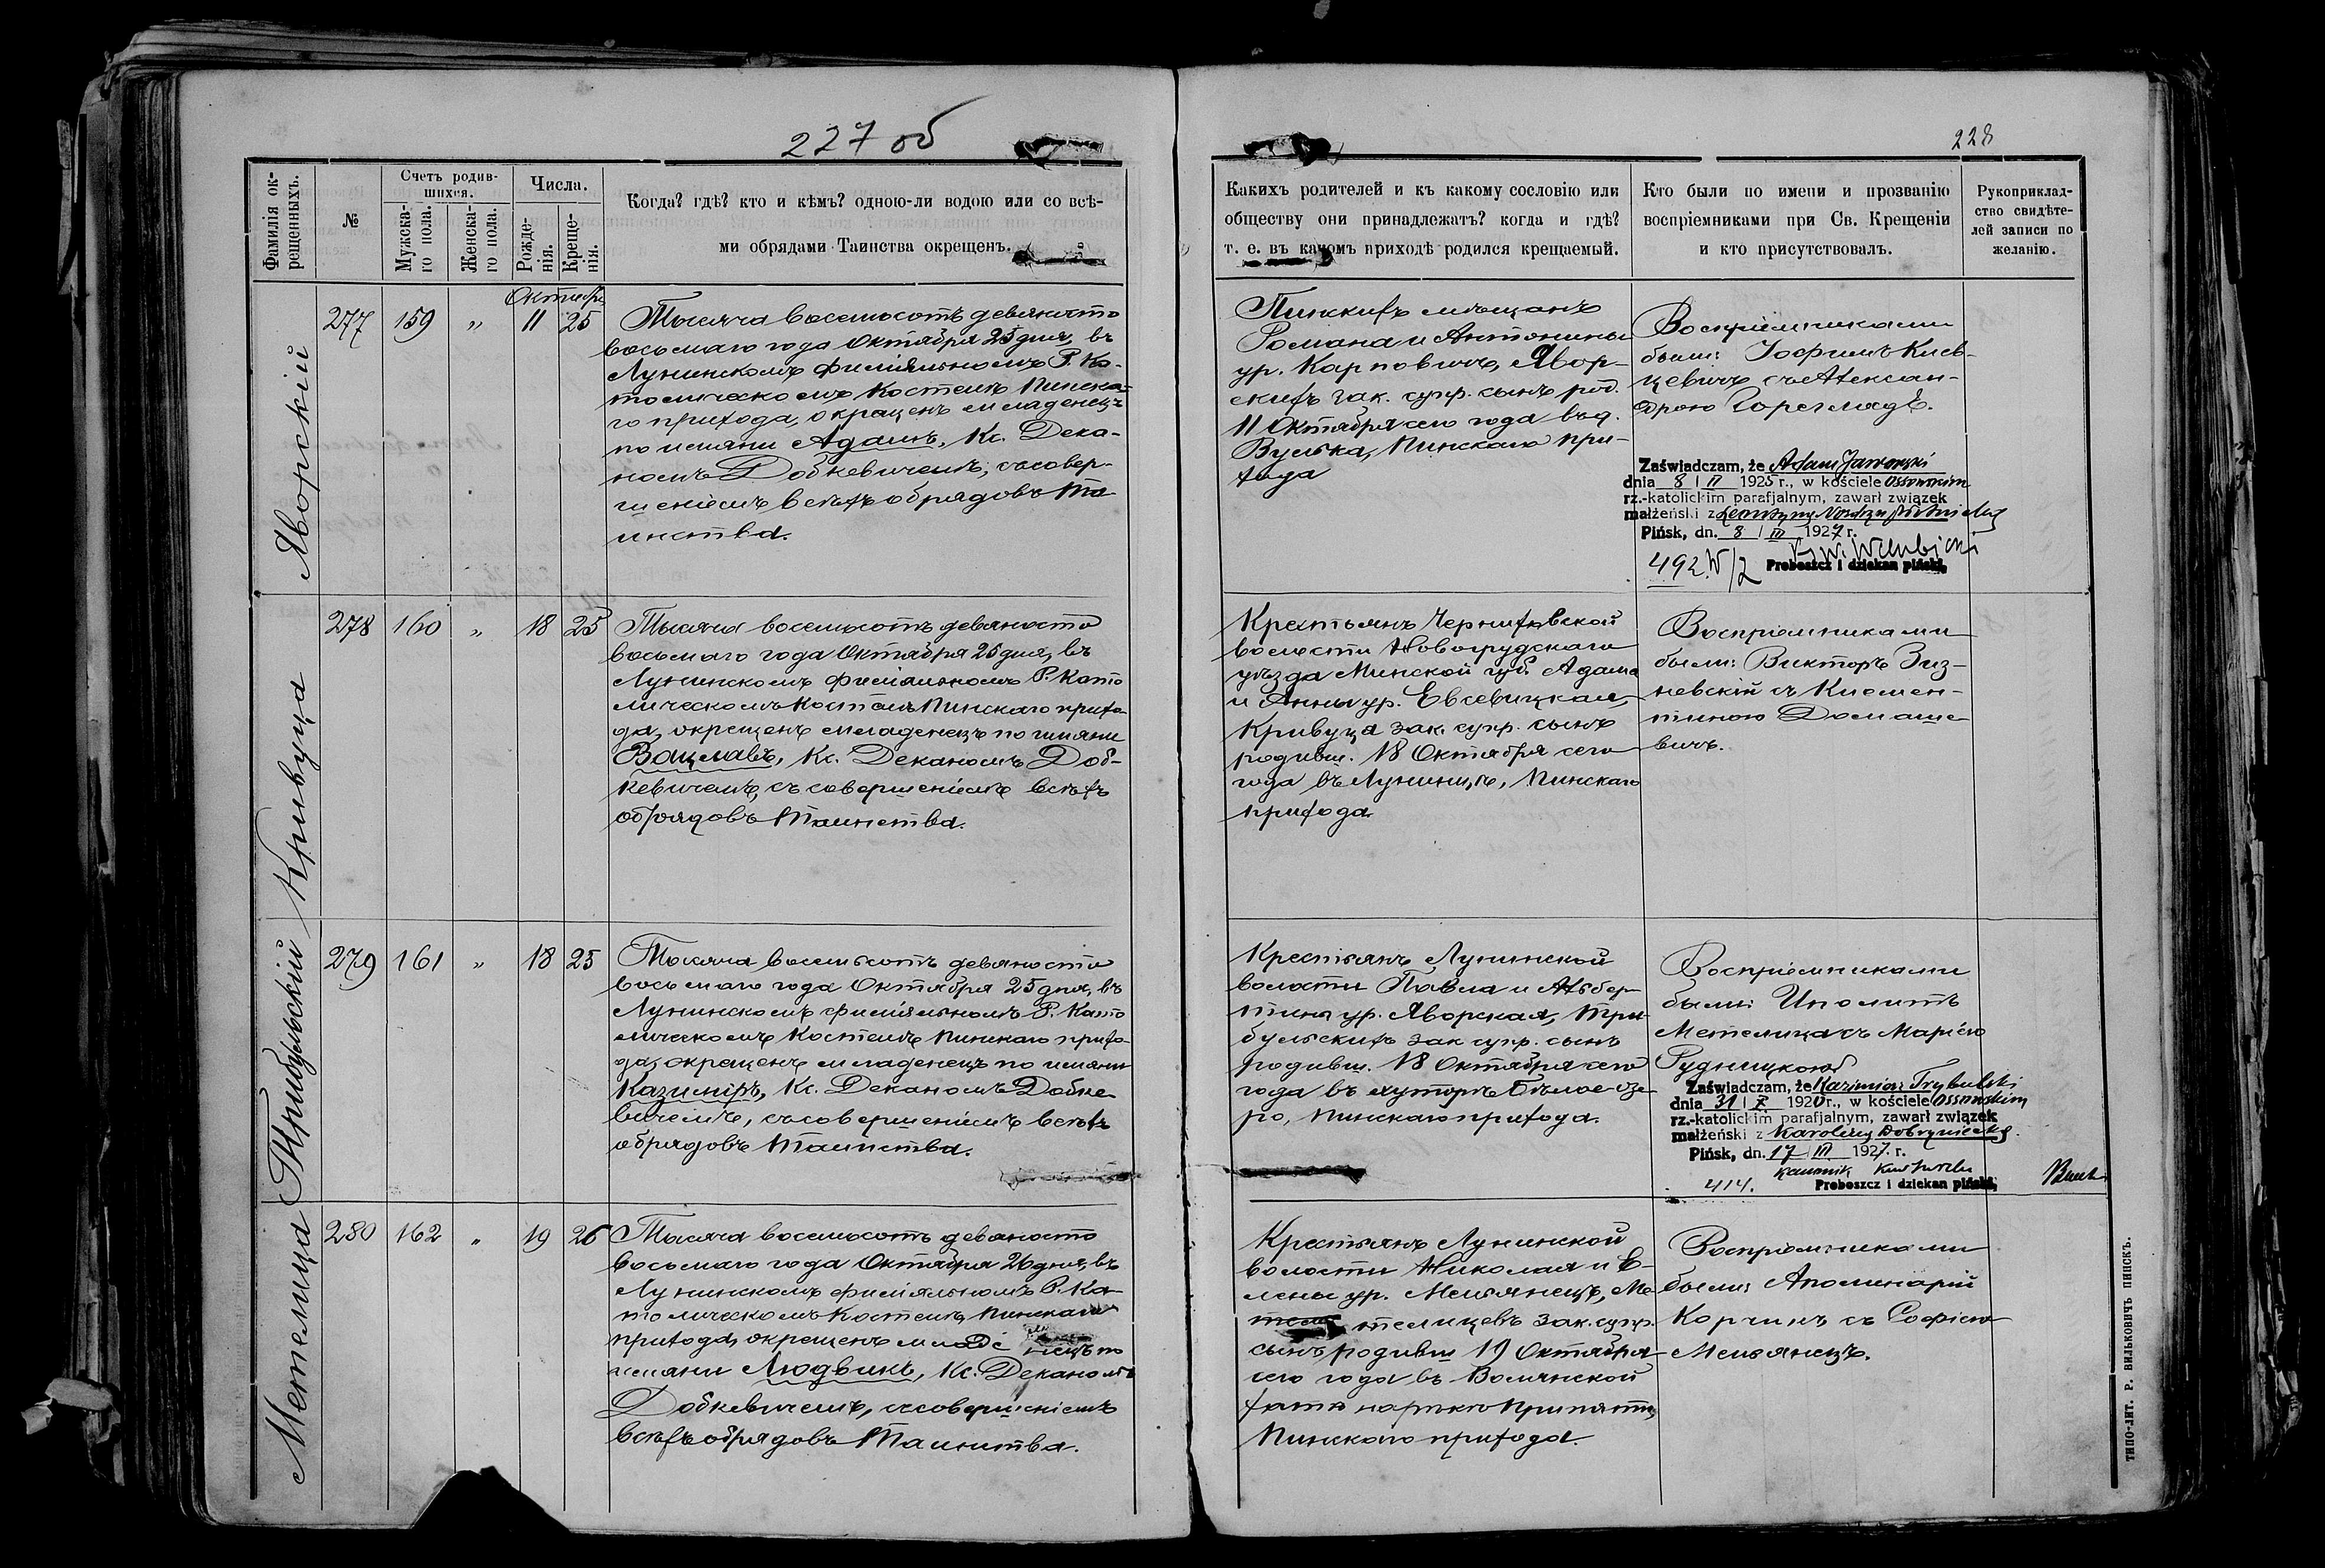 227 об
Фамилія ок-
рещенныхъ.
№
Счетъ родив-
шихся.
Мужска-
го пола.
Женска-
го пола.
Числа.
Рожде-
нія.
Креще-
нія.
Когда? гдѣ? кто и кѣмъ? одною-ли водою или со всѣ-
ми обрядами Таинства окрещенъ.
Яворскій
277
159
"
Октября
11
25
Тысяча восемьсотъ девяносто
восьмаго года Октября 25 дня, въ
Лунинскомъ филіяльномъ Р. Ка-
толическомъ Костелѣ Пинска-
го прихода, окрещенъ младенецъ
по имяни Адамъ, Кс. Дека-
номъ Добкевичемъ, съ совер-
шеніемъ всѣхъ обрядовъ Та
инства.
Кривуца
278
160
"
18
25
Тысяча восемьсотъ девяносто
восьмаго года Октября 25 дня, въ
Лунинскомъ филіяльномъ Р. Като
лическомъ Костелѣ Пинскаго прихо-
да, окрещенъ младенецъ по имяни
Вацлавъ, Кс. Деканомъ Доб-
кевичемъ, съ совершеніемъ всѣхъ
обрядовъ Таинства.
Трибульскій
279
161
"
18
25
Тысяча восемьсотъ девяносто
восьмаго года Октября 25 дня, въ
Лунинскомъ филіяльномъ Р. Като
лическомъ Костелѣ Пинскаго прихо-
да, окрещенъ младенецъ по имяни
Казиміръ, Кс. Деканомъ Добке
вичемъ, съ совершеніемъ всѣхъ
обрядовъ Таинства.
Метелица
280
162
"
19
26
Тысяча восемьсотъ девяносто
восьмаго года Октября 26 дня, въ
Лунинскомъ филіяльномъ Р. Ка-
толическомъ Костелѣ Пинскаго
прихода, окрещенъ младе нецъ по
имяни Людвикъ, Кс. Деканомъ
Добкевичемъ, съ совершеніемъ
всѣхъ обрядовъ Таинства.
228
Какихъ родителей и къ какому сословію или
обществу они принадлежатъ? когда и гдѣ?
т. е. въ какомъ приходѣ родился крещаемый.
Кто были по имени и прозванію
воспріемниками при Св. Крещеніи
и кто присутствовалъ.
Рукоприклад-
ство свидѣте-
лей записи по
желанію.
Пинскихъ мѣщанъ
Романа и Антонины
ур. Карповичъ, Явор-
скихъ зак. супр. сынъ род.
11 Октября сего года въ д.
Вулька, Пинскаго при-
хода
Воспріемниками
были: Іосифъ Киев-
цевичъ съ Алексан-
дрою
Zaświadczam, że Adam Jaworski
dnia 8 / II 1925 r., w kościele
rz.-katolickim parafjalnym, zawarł związek
małżeński z
Pińsk, dn. 8 / III 1927 r.
492 W/2
Proboszcz i dziekan piński,
Крестьянъ Черниховской
волости Новогрудскаго
уѣзда Минской губ. Адама
и Анны ур. Евсевицкая,
Кривуца зак. супр. сынъ
родивш. 18 Октября сего
года въ Лунинцѣ, Пинскаго
прихода.
Воспріемниками
были: Викторъ Зиз-
невскій съ Клемен-
тиною Домаше
вичъ.
Крестьянъ Лунинской
волости Павла и Альбер-
тины ур. Яворская, Три-
бульскихъ зак. супр. сынъ
родивш. 18 Октября сего
года въ хуторѣ Бѣлое-озе-
ро, Пинскаго прихода.
Воспріемниками
были: Иполитъ
Метелица съ Маріею
Рудницкою
Zaświadczam, że Kazimierz Trybulski
dnia 31 / X 1920 r., w kościele
rz.-katolickim parafjalnym, zawarł związek
małżeński z Karoliną Dobrzyniecką.
Pińsk, dn. 17 III 1927. r.
414.
Proboszcz i dziekan piński,
Крестьянъ Лунинской
волости Николая и Е-
лены ур. Мельянецъ, Ме
телицевъ зак. супр.
сынъ родивш 19 Октября
сего года въ Волянской
хатѣ на рѣкѣ Припяти,
Пинскаго прихода.
Воспріемниками
были: Аполинарій
Корчикъ съ Софіею
Мельянецъ.
ТИПО-ЛИТ. Р. ВИЛЬКОВИЧЪ ПИНСКЪ.